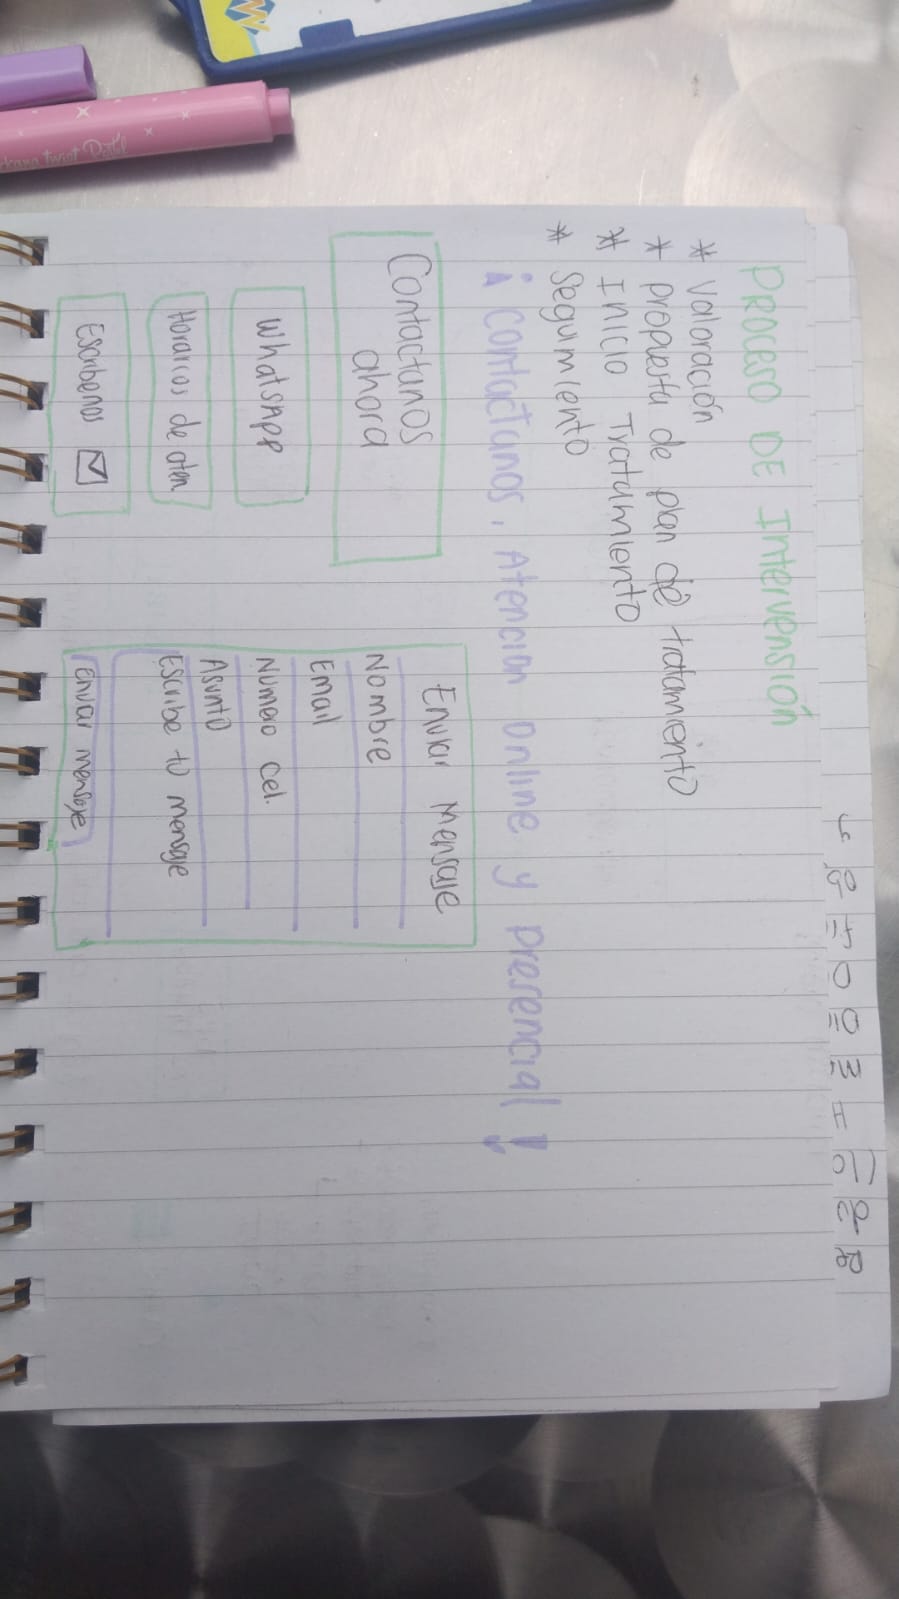 PROCESO DE Intervensión
* Valoración
* Propuesta de plan de tratamiento
* Inicio Tratamiento
* Seguimiento
¡ Contactanos. Atencion Online y presencial !
Contactanos
ahora
WhatsApp
Horarios de aten
Escribenos
Enviar Mensaje
Nombre
Email
Numero Cel.
Asunto
Escribe tu mensaje
Enviar mensaje